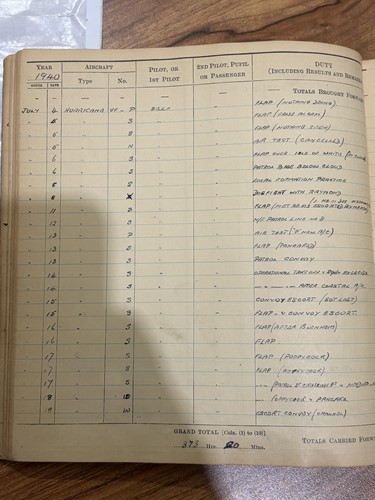 YEAR AIRCRAFT PILOT, OR 1ST PILOT 2ND PILOT, PUPIL OR PASSENGER DUTY (INCLUDING RESULTS AND REMARKS
1940
MONTH DATE Type No.
— — — — — — TOTALS BROUGHT FORWARD
JULY 4 HURRICANE VF - P SELF - FLAP (NOTHING DOING)
" 5 " S " - FLAP (FALSE ALARM)
" 5 " S " - FLAP (NOTHING SEEN)
" 5 " N " - AIR TEST (CANCELLED)
" 6 " S " - FLAP OVER ISLE OF WHITE
" 6 " S " - PATROL BASE BELOW CLOUD
" 8 " S " - LOCAL FORMATION PRACTICE
" 8 " X " - DOGFIGHT WITH RAYMOND
" 11 " S " - FLAP
" 12 " S " - PATROL LINE
" 13 " P " - AIR TEST ("P" NEW A/C)
" 13 " S " - FLAP (PANCAKED)
" 13 " S " - PATROL CONVOY
" 14 " S " - OPERATIONAL
" 14 " S " - " - " - AFTER COASTAL A/C
" 15 " S " - CONVOY ESCORT
" 15 " S " - FLAP - & CONVOY ESCORT.
" 16 " S " - FLAP (AFTER BLENHEIM)
" 16 " S " - FLAP
" 17 " S " - FLAP (POPPYCOCK)
" 17 " S " - FLAP (POPPYCOCK)
" 17 " S " -
" 18 " " - POPPYCOCK & PANCAKE
" 19 " " - ESCORT CONVOY (CHANNEL)
GRAND TOTAL [Cols. (1) to (10)]
373 Hrs. 20 Mins.
TOTALS CARRIED FORWARD